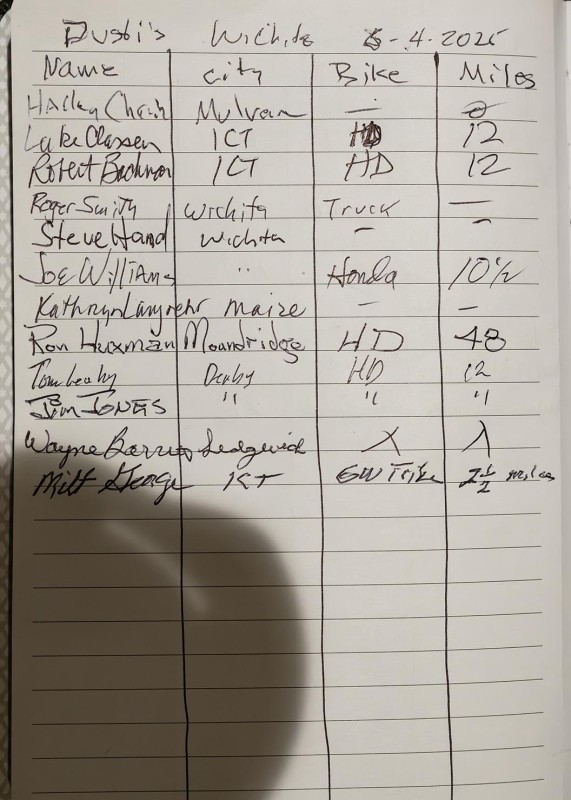 Dusti's Wichita 5-4-2025
Name City Bike Miles
Harley Mulvan — 0
Luke Classen ICT HD 12
Robert Bachman ICT HD 12
Roger Smith Wichita Truck —
Steve Hand Wichita — —
Joe Williams " Honda 10½
Kathryn Langrehr maize — —
Ron Huxman Moundridge HD 48
Tom Leahy Derby HD 12
Jim JONES " " "
Wayne Sedgwick X
Milt George ICT GW Trike 2½ miles